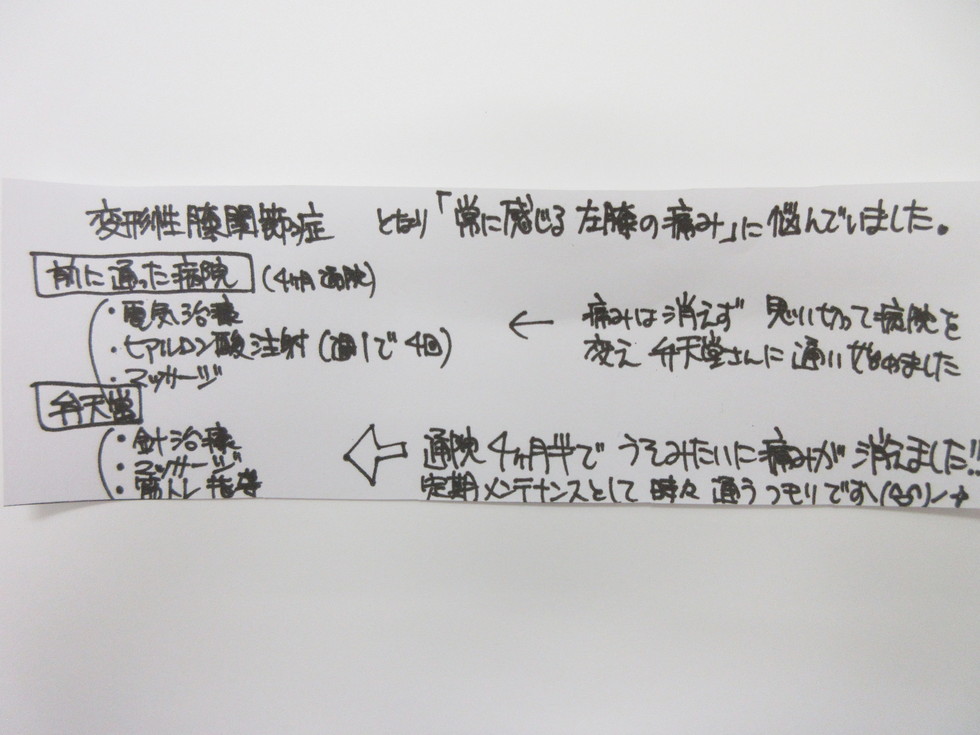 変形性膝関節症 となり「常に感じる左膝の痛み」に悩んでいました。
前に通った病院 (4ヶ月通院)
・電気治療
・ヒアルロン酸注射 (週1で4回)
・マッサージ
← 痛みは消えず 思い切って病院を
変え 弁天堂さんに通い始めました
弁天堂
・針治療
・マッサージ
・筋トレ指導
⇐ 通院4ヶ月半で うそみたいに痛みが 消えました!!
定期メンテナンスとして 時々 通うつもりです\(^o^)/